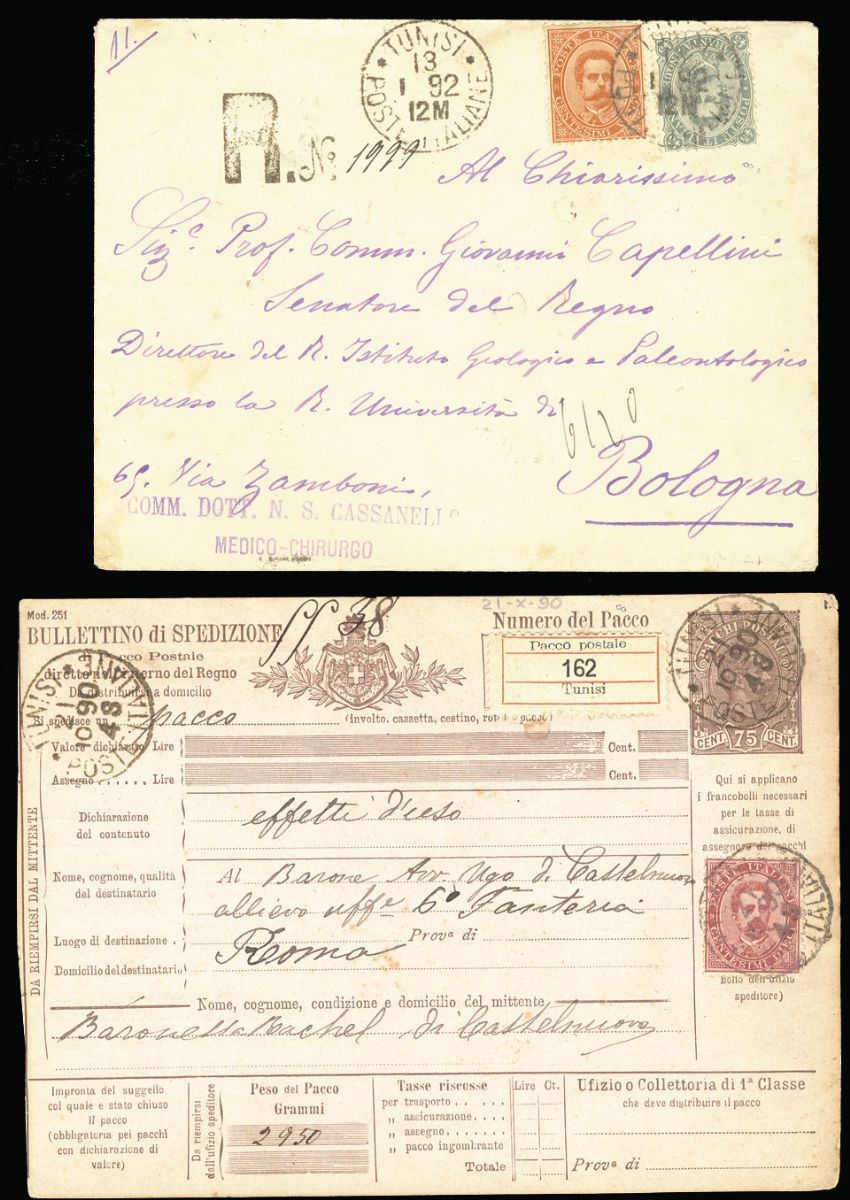 11.
TUNISI
13
1 92
12M
POSTE ITALIANE
POSTE ITALI
CENTESIMI
1 92
12M
R. No 1999
Al Chiarissimo
Sig.e Prof. Comm. Giovanni Capellini
Senatore del Regno
Direttore del R. Istituto Geologico e Paleontologico
presso la R. Università di
Bologna
65. Via Zamboni,
COMM. DOTT. N. S. CASSANELLO
MEDICO-CHIRURGO
Mod. 251
21-X-90
38
BULLETTINO di SPEDIZIONE
Numero del Pacco
Pacco Postale
diretto nell'interno del Regno
Da distribuirsi a domicilio
Pacco postale
162
Tunisi
TUNISI
21
10 90
4S
POSTE ITALIANE
TUNISI
21
10 90
4S
POSTE
PACCHI POSTALI
CENT. 75 CENT.
Si spedisce un pacco (involto, cassetta, cestino, rotolo, sacco)
Valore dichiarato Lire Cent.
Assegno Lire Cent.
Qui si applicano
i francobolli necessari
per le tasse di
assicurazione, di
assegno e dei pacchi
DA RIEMPIRSI DAL MITTENTE
Dichiarazione
del contenuto
effetti d'uso
Nome, cognome, qualità
del destinatario
Al Barone Avv. Ugo di Castelnuovo
allievo uff.e 6° Fanteria
Luogo di destinazione .
Prov.a di
Roma
Domicilio del destinatario
POSTE ITALIANE
CENTESIMI
Bollo dell'ufizio
speditore)
Nome, cognome, condizione e domicilio del mittente
Baronessa Rachel di Castelnuovo
Impronta del suggello
col quale e stato chiuso
il pacco
(obbligatoria pei pacchi
con dichiarazione di
valore)
Da riempirsi
dall'ufizio speditore
Peso del Pacco
Grammi
2950
Tasse riscosse
Lire Ct.
per trasporto . . . .
„ assicurazione. . .
„ assegno . . . . .
„ pacco ingombrante
Totale
Ufizio o Collettoria di 1ª Classe
che deve distribuire il pacco
Prov.a di